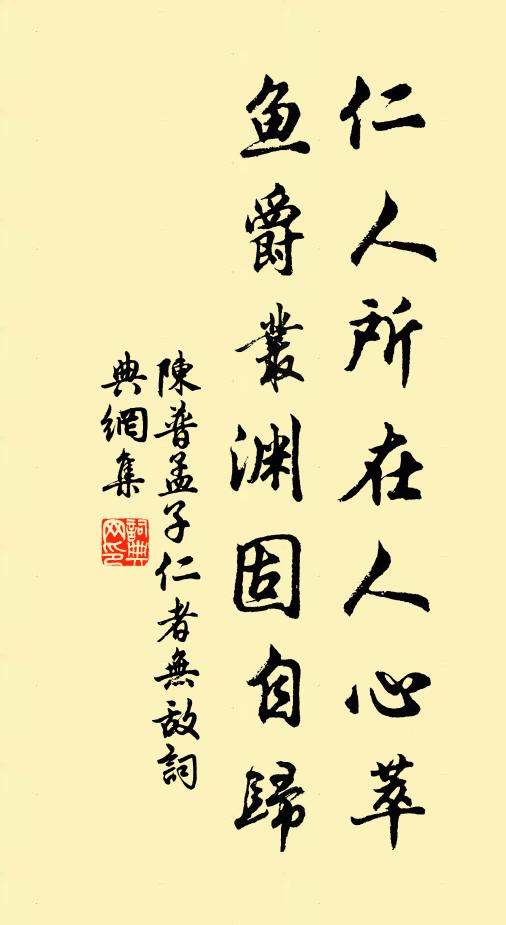 仁人所在人心萃
鱼爵叢渊固自歸
陳普孟子仁者無敌詞
典網集
詞典網印